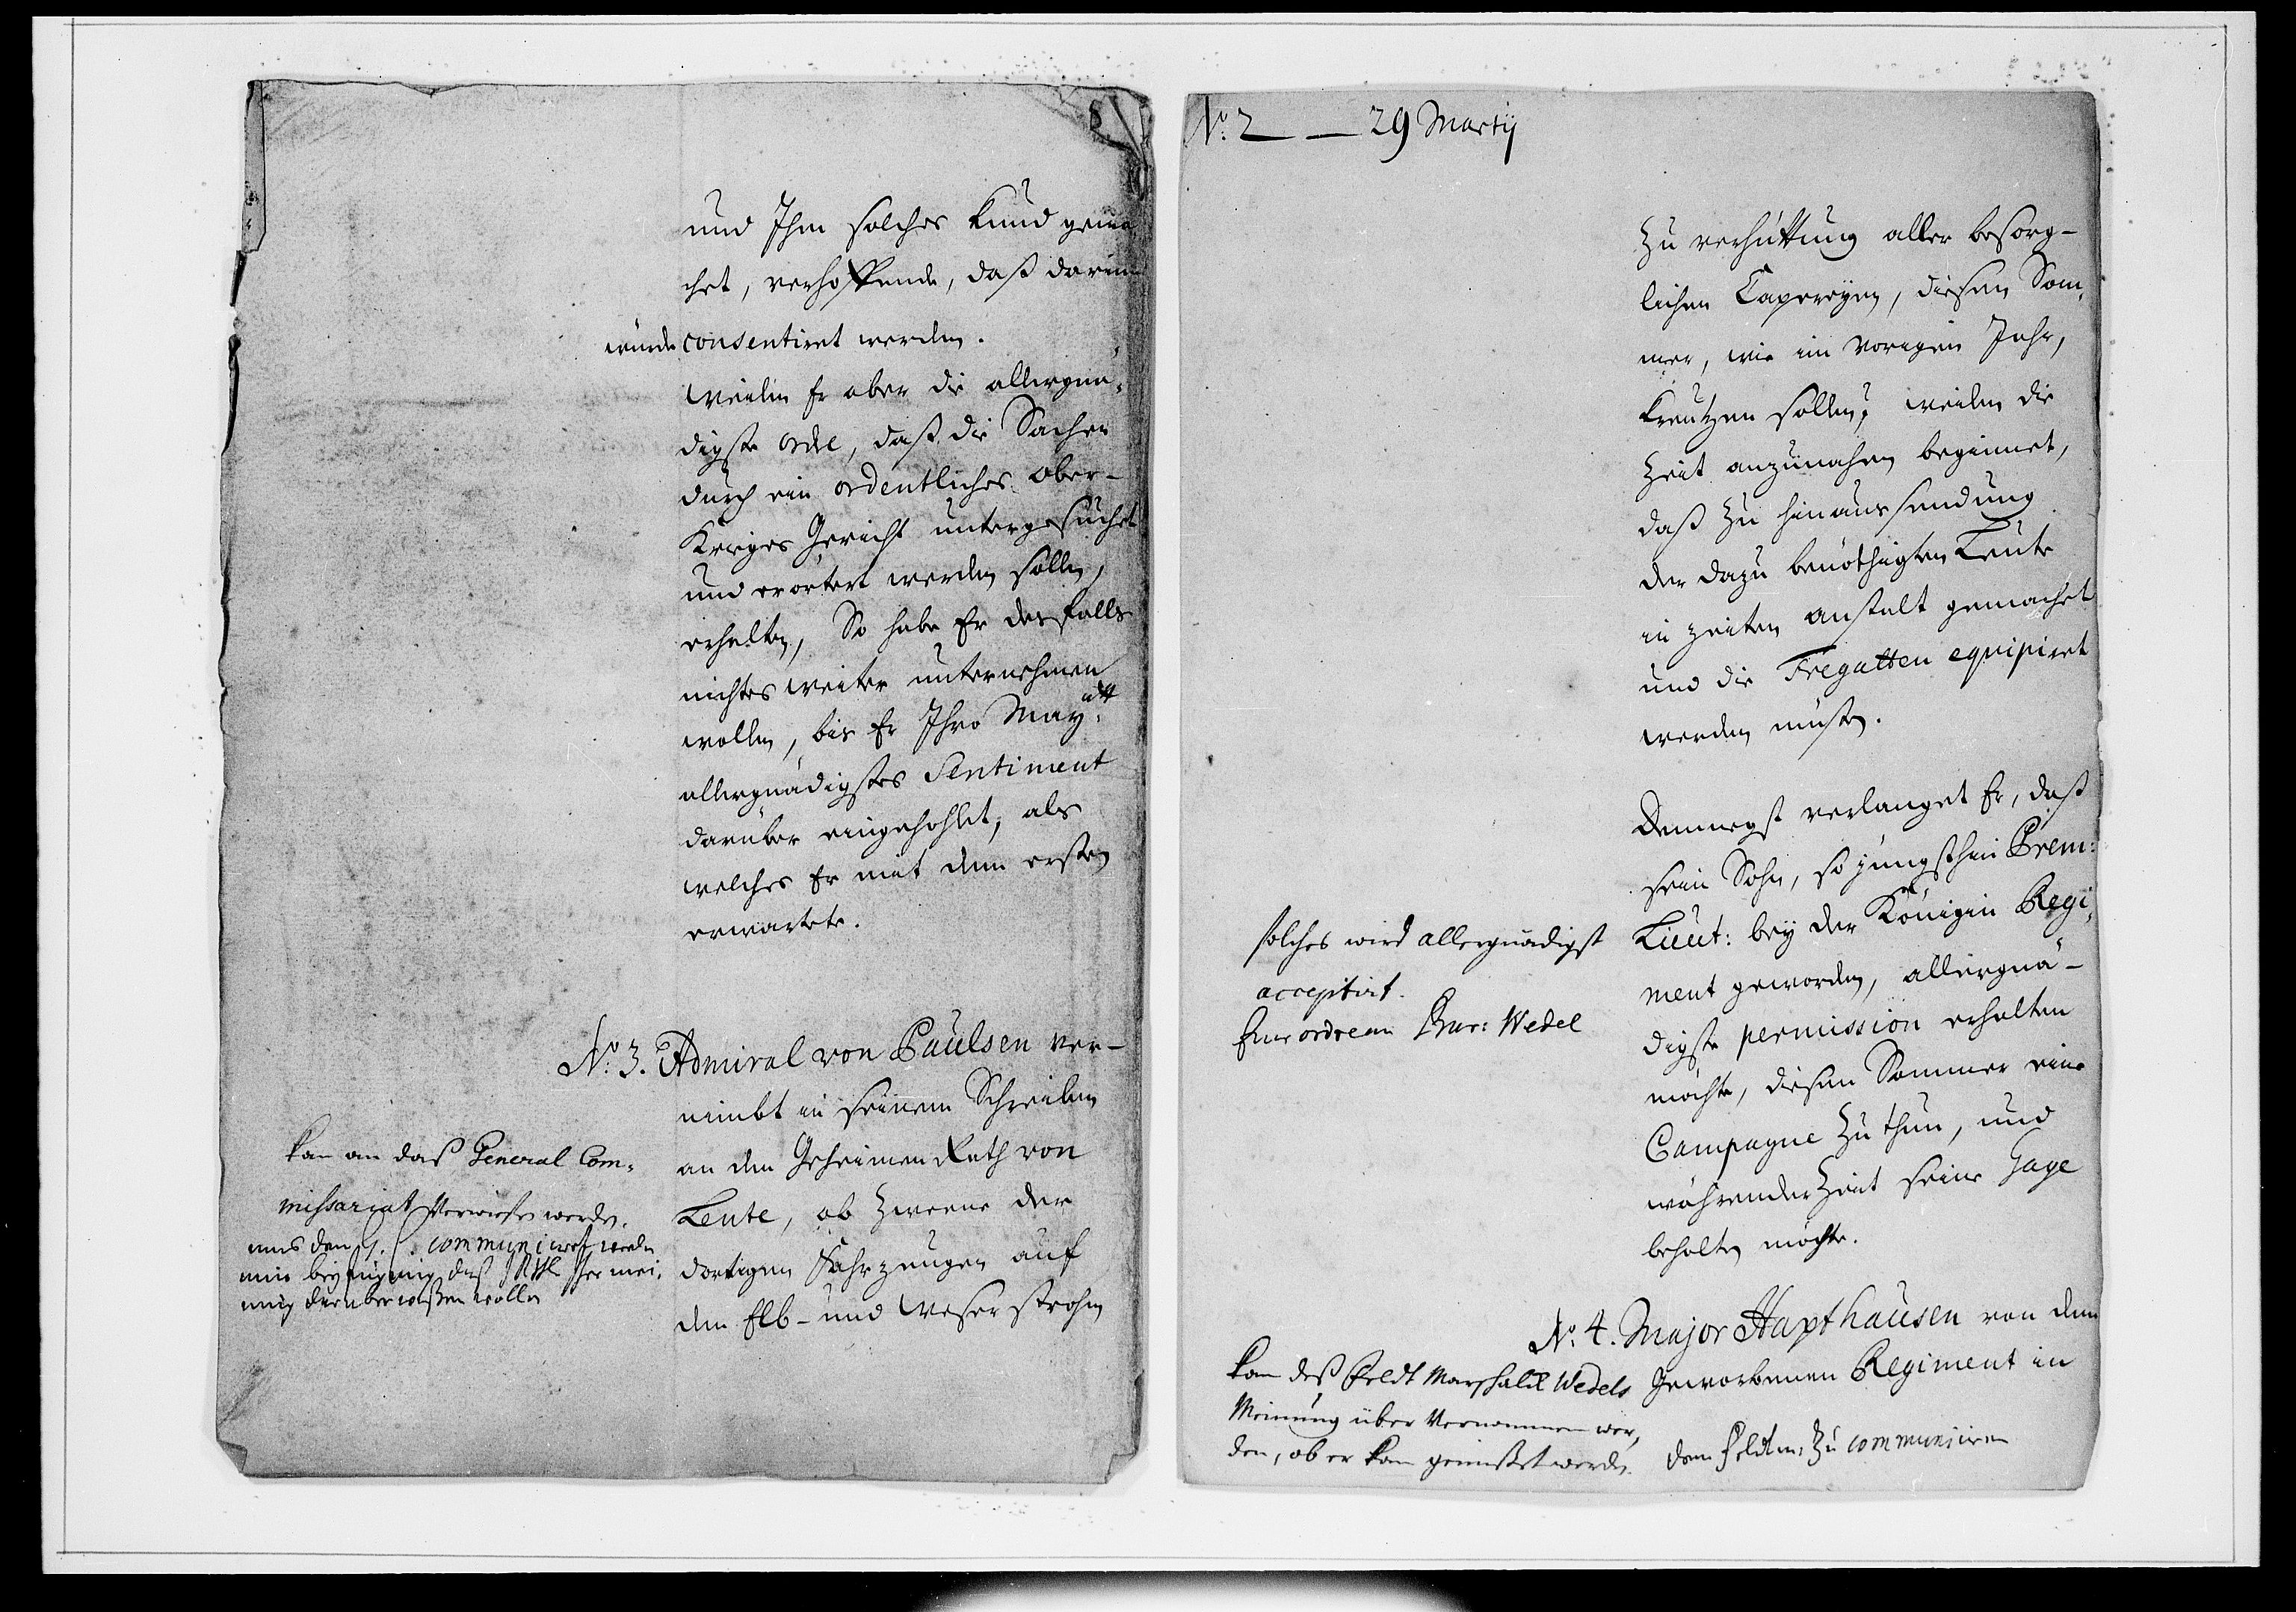 8
und Ihm solches kund gema
chet, verhoffende, daß darin
würde consentiret werden.
Weilen Er aber die allergnä-
digste ordre, daß die Sachen
durch ein ordentliches Ober-
Krieges Gericht untergesuchet
und erörtert werden sollen,
erhalten, So habe Er desfalls
nichtes weiter unternehmen
wollen, bis Er Ihro Mayᵗᵗ:
allergnädigstes Sentiment
darüber eingehohlet, als
welches Er mit dem ersten
erwartete.
No: 3. Admiral von Paulsen ver-
nimbt in seinem Schreiben
an den Geheimen Rath von
Lente, ob zweene der
dortigen Fahrzeugen auf
dem Elb- und Weser strohm
kan an daß General Com-
missariat Verwiesen werden.
mus den communiciret werden
mit beyfügung daß Ihre mei-
nung darüber wißen wollen
No: 2 — 29 Martij
zu verhüttung aller besorg-
lichen Capereyen, diesen Som-
mer, wie im vorigen Jahr,
kreutzen sollen, weilen die
Zeit anzunahen beginnet,
daß zu hinaussendung
der dazu benöthigten Leute
in zeiten anstalt gemachet
und die Fregatten equipiret
werden müste.
Demnegst verlanget Er, daß
sein Sohn, so jüngsthin Prem:
Lieut: bey der Königin Regi-
ment geworden, allergnä-
digste permission erhalten
möchte, diesen Sommer eine
Campagne zu thun, und
währender Zeit seine Gage
behalten möchte.
solches wird allergnädigst
acceptirt.
Eine ordre an Wedel
No: 4. Major Haxthausen von dem
Geworbenen Regiment in
kan deß Feldt Marschalck Wedels
Meinung über Vernommen wer-
den, ob er kan gemißet werden.
dem Feldtm: zu communiciren